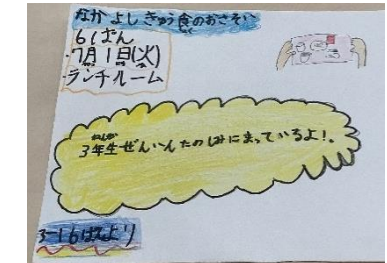 なかよしきゅう食のおさそい
6ぱん
・7月1日(火)
・ランチルーム
3年生ぜんいんたのしみにまっているよ!。
3-1 6ぱんより